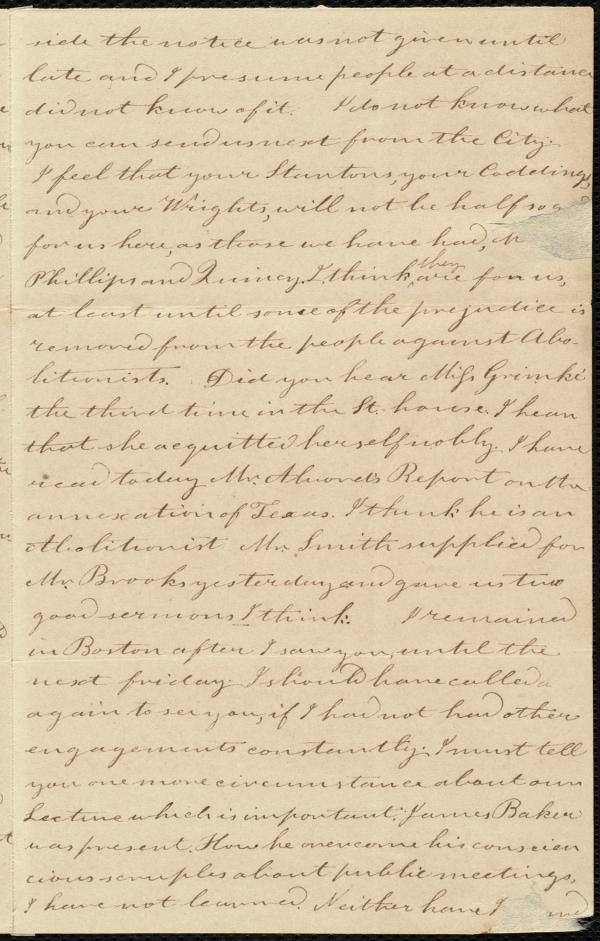 side the notice was not given until
late and I presume people at a distance
did not know of it. I do not know what
you can send us next from the City.
I feel that your Stantons, your Coddings,
and your Wrights, will not be half so
for us here, as those we have had,
Phillips and Quincy. I think, they are for us,
at least until some of the prejudice is
removed from the people against Abo-
litionists. Did you hear Miss Grimké
the third time in the St. house. I hear
that she acquitted herself nobly. I have
read today Mr. Alvord's Report on the
annexation of Texas. I think he is an
Abolitionist Mr. Smith supplied for
Mr. Brooks yesterday, and gave us two
good sermons I think. I remained
in Boston after I saw you, until the
next friday. I should have called
again to see you, if I had not had other
engagements constantly. I must tell
you one more circumstance about our
Lecture which is important. James Baker
was present. How he overcome his conscien
cious scruples about public meetings,
I have not learned. Neither have I